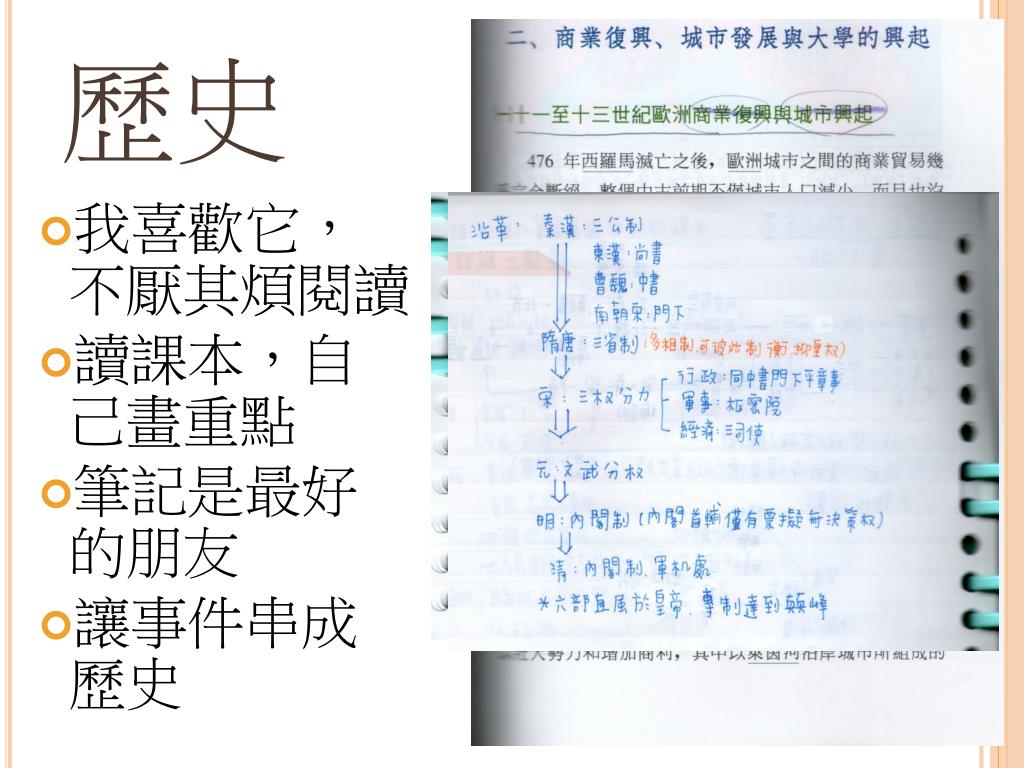 歷史
我喜歡它，
不厭其煩閱讀
讀課本，自
己畫重點
筆記是最好
的朋友
讓事件串成
歷史
二、商業復興、城市發展與大學的興起
十一至十三世紀歐洲商業復興與城市興起
476 年西羅馬滅亡之後，歐洲城市之間的商業貿易幾
沿革：秦漢：三公制
東漢：尚書
曹魏：中書
南朝宋：門下
隋唐：三省制(多相制,可彼此制衡,抑重权)
宋：三权分力
行政：同中書門下平章事
軍事：枢密院
經濟：三司使
元：文武分权
明：內閣制(內閣首輔僅有票擬毋決策权)
清：內閣制.軍机處
*六部直属於皇帝.專制達到巔峰
勢力和增加商利，其中以萊茵河沿岸城市所組成的